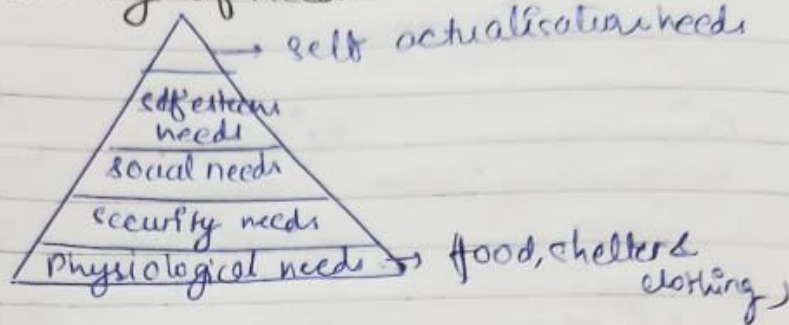 of
self actualisation needs
self esteem
needs
social needs
security needs
Physiological needs → food, shelter &
clothing,